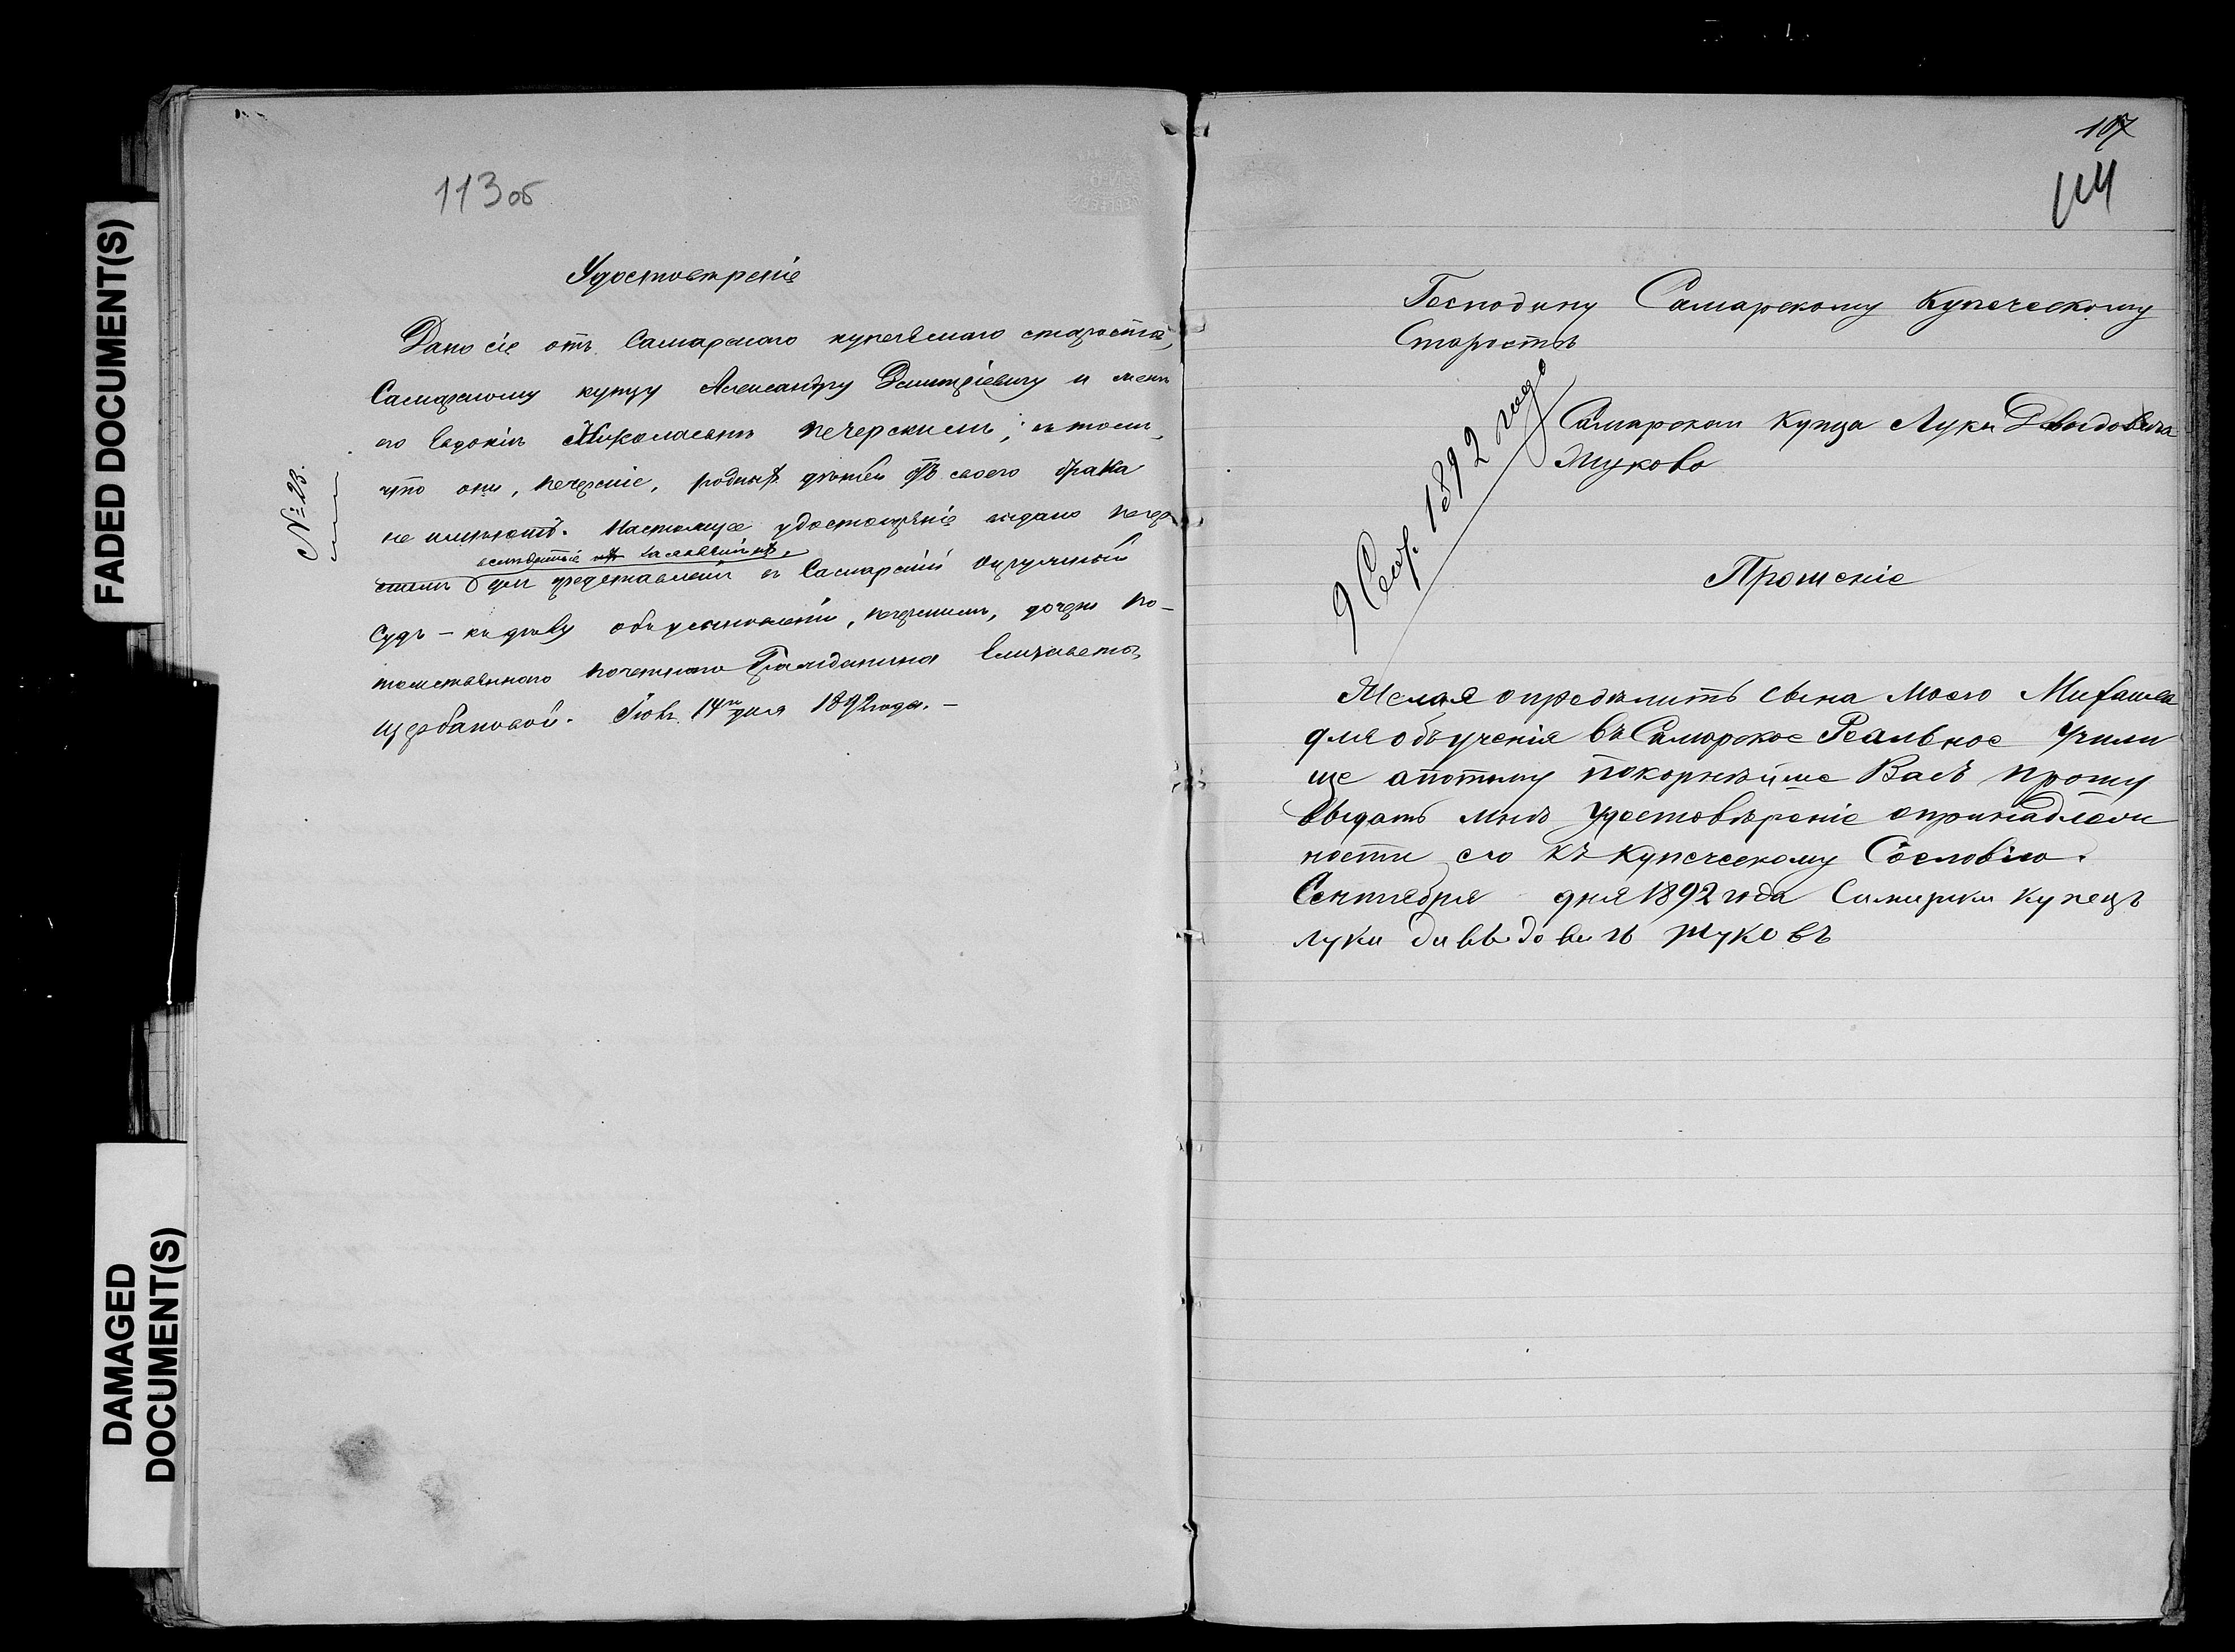 FADED DOCUMENT(S)
DAMAGED
DOCUMENT(S)
113 об
Удостовѣреніе
№ 23.
Дано сіе отъ Самарскаго купеческаго старосты,
Самарскому купцу Александру Дмитріевичу и женѣ
его Евдокіи Николаевнѣ Печерскимъ; въ томъ,
что они, Печерскіе, родныхъ дѣтей отъ своего брака
не имѣютъ. Настоящее удостовѣреніе выдано Печер
вслѣдствіе ихъ заявленія,
скимъ для представленія въ Самарскій Окружный
Судъ – къ дѣлу объ усыновленіи, Печерскими, дочери По-
томственнаго Почетнаго Гражданина Елизаветы
Щербаковой. Іюня 14го дня 1892 года. –
107
114
Господину Самарскому Купеческому
Старостѣ
Самарскаи Купца Луки Давыдовича
Жукова
9 Сент. 1892 года
Прошеніе
Желая опредѣлить сына моего Михаила
для объученія въ Самарское Реальное Учили
ще апотому покорнѣйше Васъ прошу
выдать мнѣ Удостовѣреніе опринадлежи
ности его къ купеческому Сословію.
Сентября дня 1892 года Самарски Купецъ
Лука Давыдовичъ Жуковъ